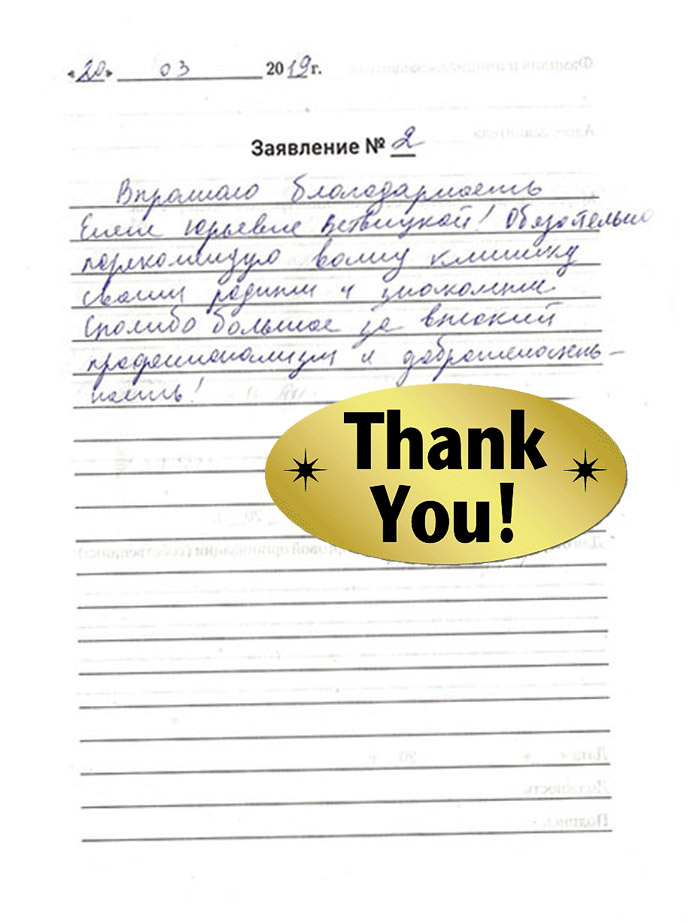 «20» 03 2019г.
Заявление № 2
Выражаю благодарность
Елене Юрьевне! Обязательно
порекомендую вашу клинику
своим родным и знакомым.
Спасибо большое за высокий
профессионализм и доброжелатель-
ность!
Thank
You!